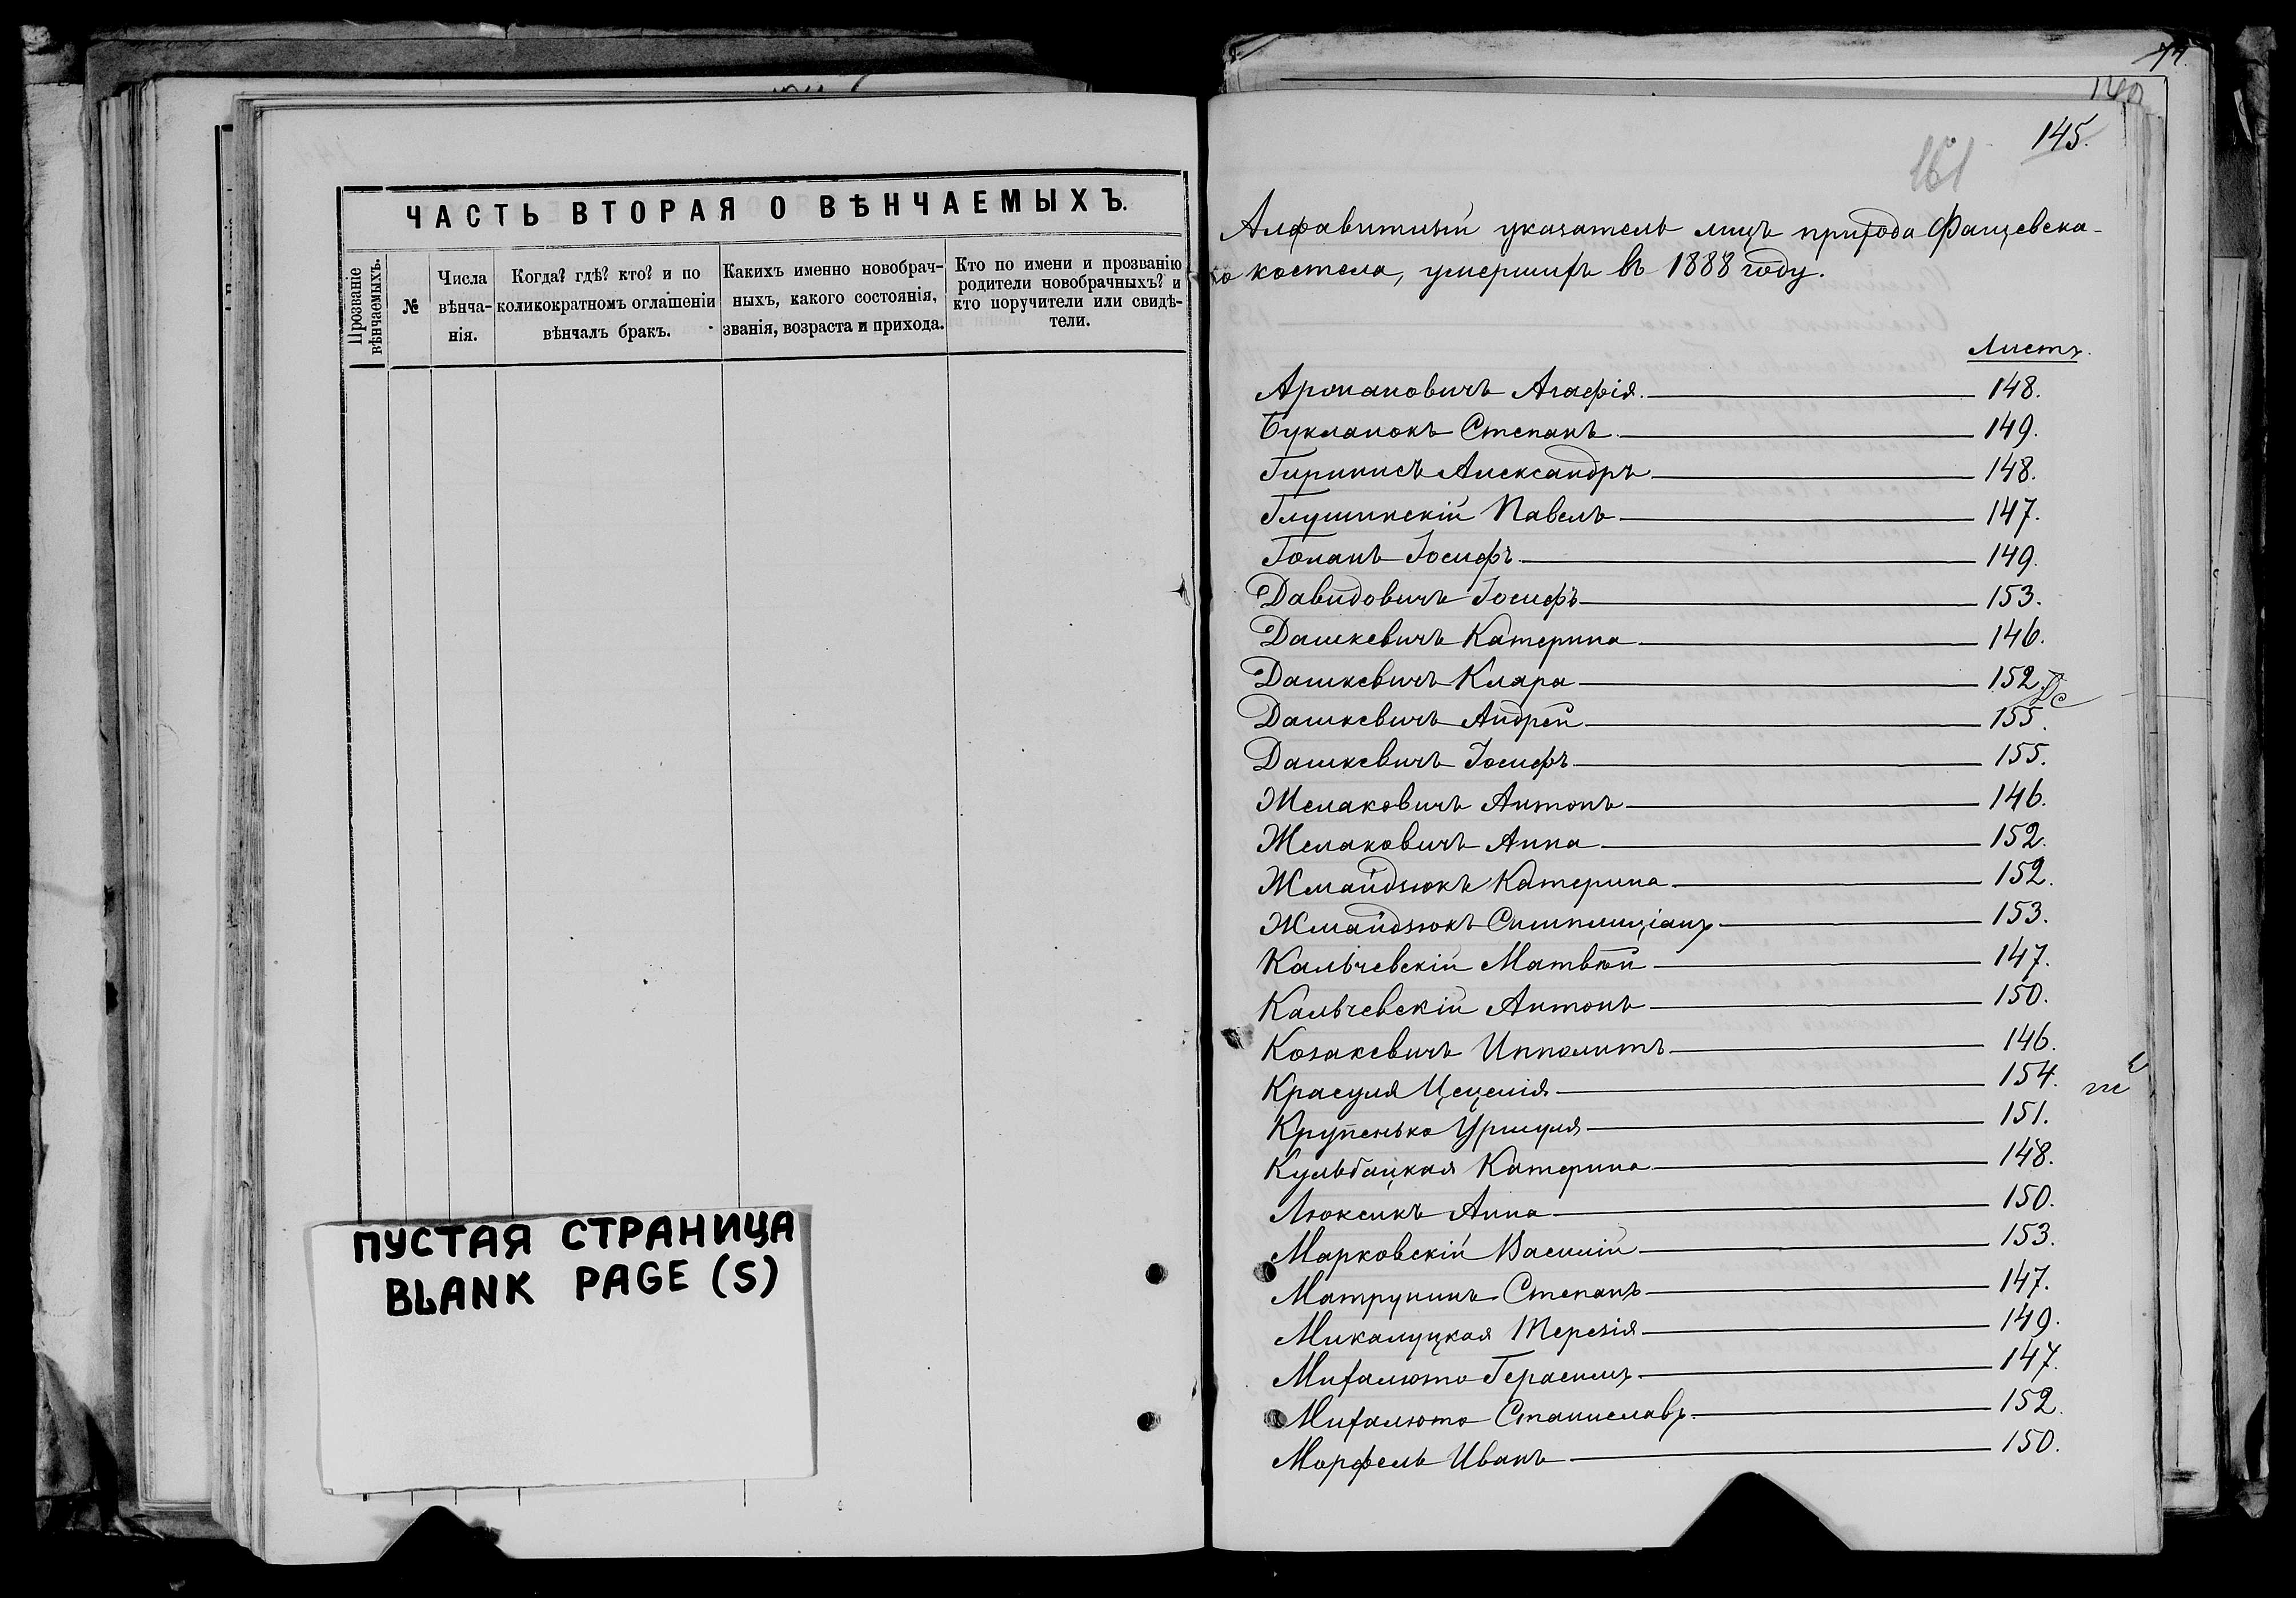 ЧАСТЬ ВТОРАЯ О ВѢНЧАЕМЫХЪ.
Прозваніе вѣнчаемыхъ.
№
Числа
вѣнча-
нія.
Когда? гдѣ? кто? и по
коликократномъ оглашеніи
вѣнчалъ бракъ.
Какихъ именно новобрач-
ныхъ, какого состоянія,
званія, возраста и прихода.
Кто по имени и прозванію
родители новобрачныхъ? и
кто поручители или свидѣ-
тели.
ПУСТАЯ СТРАНИЦА
BLANK PAGE (S)
145.
161
Алфавитный указатель лицъ прихода Фащевска-
го костела, умершихъ въ 1888 году.
Листъ.
Аромановичъ Агафія. 148.
Букламокъ Степанъ. 149.
Гиринисъ Александръ 148.
Глушинскій Павелъ 147.
Гоманъ Іосифъ. 149.
Давидовичъ Іосифъ 153.
Дашкевичъ Катерина 146.
Дашкевичъ Клара 152.
Дашкевичъ Андрей 155.
Дашкевичъ Іосифъ 155.
Жемаковичъ Антонъ 146.
Жемаковичъ Анна 152.
Жмайдзюкъ Катерина 152.
Жмайдзюкъ Симплиціанъ 153.
Кальчевскій Матвѣй 147.
Кальчевскій Антонъ 150.
Козакевичъ Ипполитъ 146.
Красуля Цецилія 154.
Крупенько Уршуля 151.
Кульбацкая Катерина 148.
Люксикъ Анна 150.
Марковскій Василій 153.
Матрунинъ Степанъ 147.
Микалуцкая Терезія 149.
Михалюто Герасимъ 147.
Михалюто Станиславъ. 152.
Морфель Иванъ 150.